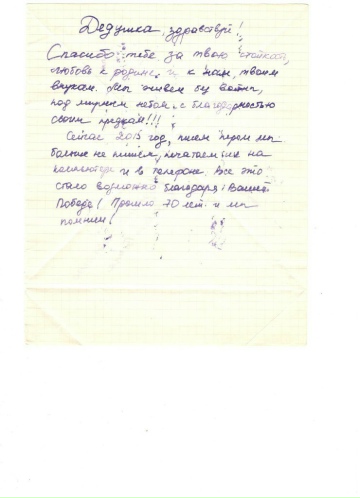 Дедушка, здравствуй!
Спасибо тебе за твою стойкость,
любовь к родине и к нам, твоим
внукам. Мы живем без войны,
под мирным небом, с благодарностью
своим предкам!!!
Сейчас 2015 год, писем пером мы
больше не пишем, печатаем их на
компьютере и в телефоне. Все это
стало возможно благодаря Вашей
Победе! Прошло 70 лет и мы
помним!